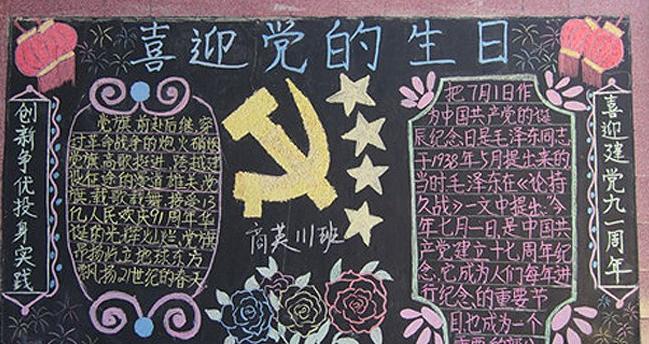 喜迎党的生日
创新争优投身实践
党旗,前赴后继,穿
过革命战争的炮火硝烟
党旗高歌挺进,跨越
征途的
旗,载歌载舞,接受13
亿人民欢庆91周年华
诞的光辉灿烂,党旗
昂扬屹立地球东方
飘扬21世纪的春天
商英川班
把7月1日作
为中国共产党的诞
辰纪念日是毛泽东同志
于1938年5月提出来的
当时毛泽东在《论持
久战》一文中提出:今
年七月一日,是中国共
产党建立十七周年纪
念,它成为人们每年进
行纪念的重要节
日也成为一个
重要的
喜迎建党九一周年